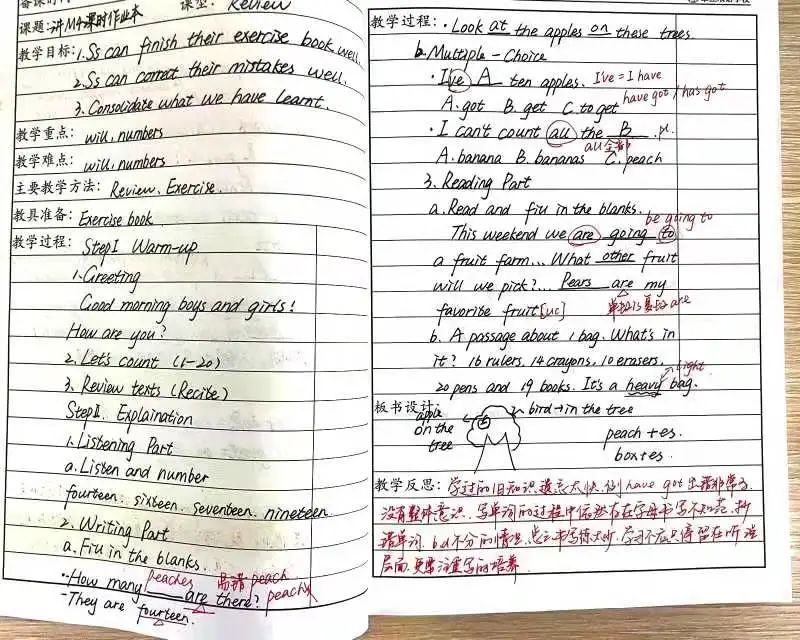 课型: Review
课题: 讲M4课时作业本
教学目标: 1. Ss can finish their exercise book well.
2. Ss can correct their mistakes well.
3. Consolidate what we have learnt.
教学重点: will, numbers
教学难点: will, numbers
主要教学方法: Review, Exercise.
教具准备: Exercise book
教学过程: Step I Warm-up
1. Greeting
Good morning boys and girls!
How are you?
2. Let's count (1-20)
3. Review texts (Recite)
Step II. Explaination
1. Listening Part
a. Listen and number
fourteen... sixteen. seventeen. nineteen
2. Writing Part
a. Fill in the blanks.
peaches 易错 peach
- How many are there? peachs
- They are fourteen.
教学过程: · Look at the apples on these trees
b. Multiple - Choice
· I've A ten apples. I've = I have
A. got B. get C. to get have got / has got
· I can't count all the B. pl.
all 全部
A. banana B. bananas C. peach
3. Reading Part
a. Read and fill in the blanks.
be going to
This weekend we are going to
a fruit farm... What other fruit
will we pick?... Pears are my
favorite fruit [uc] 单数is 复数are
b. A passage about 1 bag. What's in
it? 16 rulers. 14 crayons, 10 erasers,
light
20 pens and 19 books. It's a heavy bag.
板书设计:
apple on the tree
bird→in the tree
peach+es.
box+es.
教学反思: 学过的旧知识遗忘太快, 例have got 出错非常多
没有整体意识. 写单词的过程中依然存在字母书写不规范, 抄
错单词, b d不分的情况. 学习不应只停留在听说
层面, 更要注重写的培养